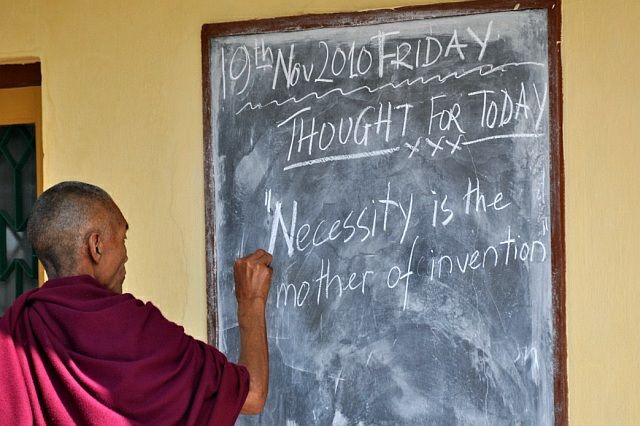 19th Nov 2010 FRIDAY
THOUGHT FOR TODAY
xxx
"Necessity is the
mother of invention"